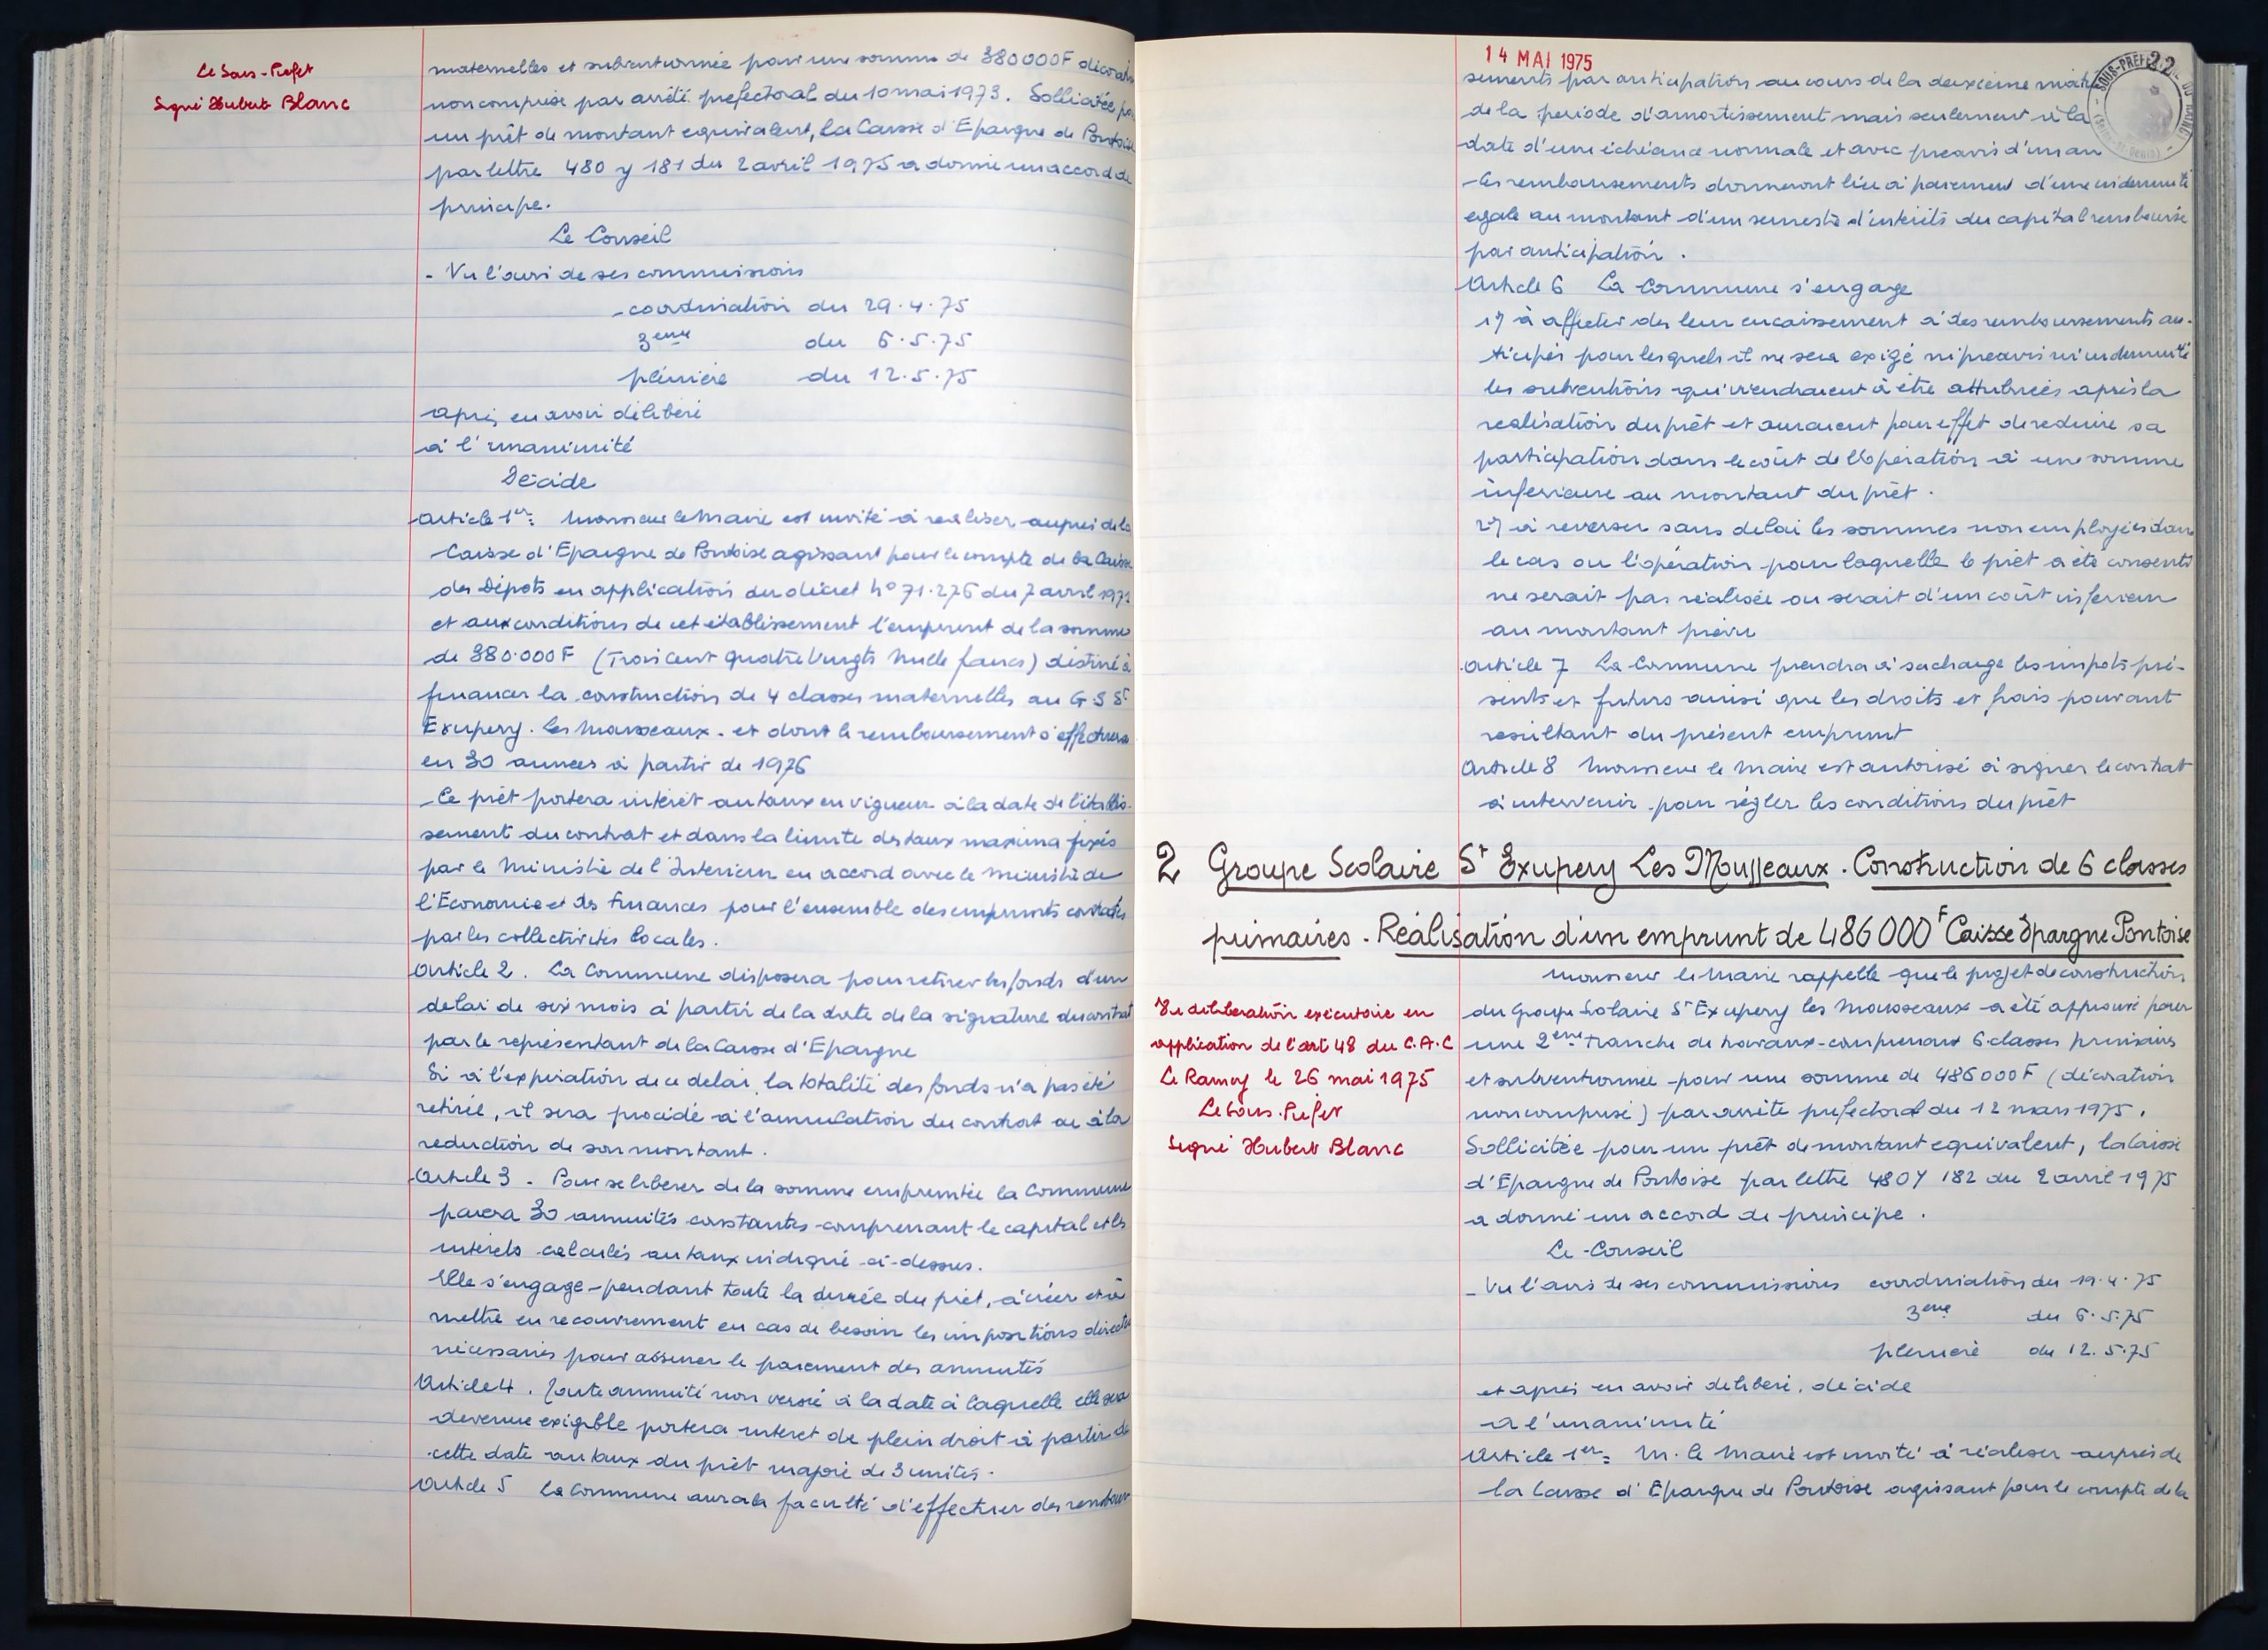 Le Sous-Prefet
Signé Hubert Blanc
maternelles et subventionnée pour une somme de 380000F décorat
non comprise par arrêté prefectoral du 10 mai 1973. Sollicitée po
un prêt de montant equivalent, la Caisse d'Epargne de Pontoise
par lettre 480 y 181 du 2 avril 1975 a donné un accord de
principe.
Le Conseil
- Vu l'avis de ses commissions
- coordination du 29.4.75
3eme du 6.5.75
plénière du 12.5.75
après en avoir délibéré
à l'unanimité
Décide
Article 1er: Monsieur le Maire est invité à réaliser auprès de la
Caisse d'Epargne de Pontoise agissant pour le compte de la Caisse
des Dépots en application du décret n° 71.276 du 7 avril 197
et aux conditions de cet établissement l'emprunt de la somme
de 380.000F (Trois cent quatre vingts mille francs) destiné à
financer la construction de 4 classes maternelles au G S St
Exupery. Les Mousseaux - et dont le remboursement s'effectuera
en 30 années à partir de 1976
- Ce prêt portera intérêt au taux en vigueur à la date de l'établis-
sement du contrat et dans la limite des taux maxima fixés
par le Ministre de l'Interieur en accord avec le Ministre de
l'Economie et des Finances pour l'ensemble des emprunts contractés
par les collectivités locales.
Article 2. La Commune disposera pour retirer les fonds d'un
delai de six mois à partir de la date de la signature du contrat
par le représentant de la Caisse d'Epargne
Si à l'expiration de ce delai, la totalité des fonds n'a pas été
retirée, il sera procédé à l'annulation du contrat ou à la
reduction de son montant.
Article 3 - Pour se liberer de la somme empruntée la Commune
paiera 30 annuités constantes comprenant le capital et les
intérêts calculés au taux indiqué ci-dessus.
Elle s'engage pendant toute la durée du prêt, à créer et à
mettre en recouvrement en cas de besoin les impositions directes
nécessaires pour assurer le paiement des annuités
Article 4. Toute annuité non versée à la date à laquelle elle sera
devenue exigible portera interet de plein droit à partir de
cette date au taux du prêt majoré de 3 unités.
Article 5 La Commune aura la faculté d'effectuer des rembour
14 MAI 1975
22
SOUS-PREFE
sements par anticipation au cours de la deuxième moit
de la période d'amortissement mais seulement à la
date d'une échéance normale et avec preavis d'un an
- Les remboursements donneront lieu à paiement d'une indemnité
egale au montant d'un semestre d'intérêts du capital remboursé
par anticipation.
Article 6 La Commune s'engage
1°/ à affecter dès leur encaissement à des remboursements an-
ticipés pour lesquels il ne sera exigé ni preavis ni indemnité
les subventions qui viendraient à être attribuées après la
realisation du prêt et auraient pour effet de reduire sa
participation dans le coût de l'opération à une somme
inferieure au montant du prêt.
2°/ à reverser sans delai les sommes non employées dans
le cas ou l'opération pour laquelle le prêt a été consenti
ne serait pas réalisée ou serait d'un coût inferieur
au montant prévu
Article 7 La Commune prendra à sa charge les impots pré-
sents et futurs ainsi que les droits et frais pouvant
resultant du présent emprunt
Article 8 Monsieur le Maire est autorisé à signer le contrat
à intervenir pour régler les conditions du prêt
2 Groupe Scolaire St Exupery Les Mousseaux. Construction de 6 classes
primaires. Réalisation d'un emprunt de 486000F Caisse Epargne Pontoise
Monsieur le Maire rappelle que le projet de construction
du Groupe Scolaire St Exupery les Mousseaux a été approuvé pour
une 2ème Tranche de travaux comprenant 6 classes primaires
et subventionnée pour une somme de 486000F (décoration
non comprise) par arrêté prefectoral du 12 mars 1975.
Sollicitée pour un prêt de montant equivalent, la Caisse
d'Epargne de Pontoise par lettre 480Y 182 du 2 avril 1975
a donné un accord de principe.
Vu deliberation exécutoire en
application de l'art 48 du C.A.C
Le Raincy le 26 mai 1975
Le Sous-Prefet
Signé Hubert Blanc
Le Conseil
- Vu l'avis de ses commissions coordination du 19.4.75
3eme du 6.5.75
plenière du 12.5.75
et après en avoir deliberé, décide
a l'unanimité
Article 1er: M. le Maire est invité à réaliser auprès de
la Caisse d'Epargne de Pontoise agissant pour le compte de la